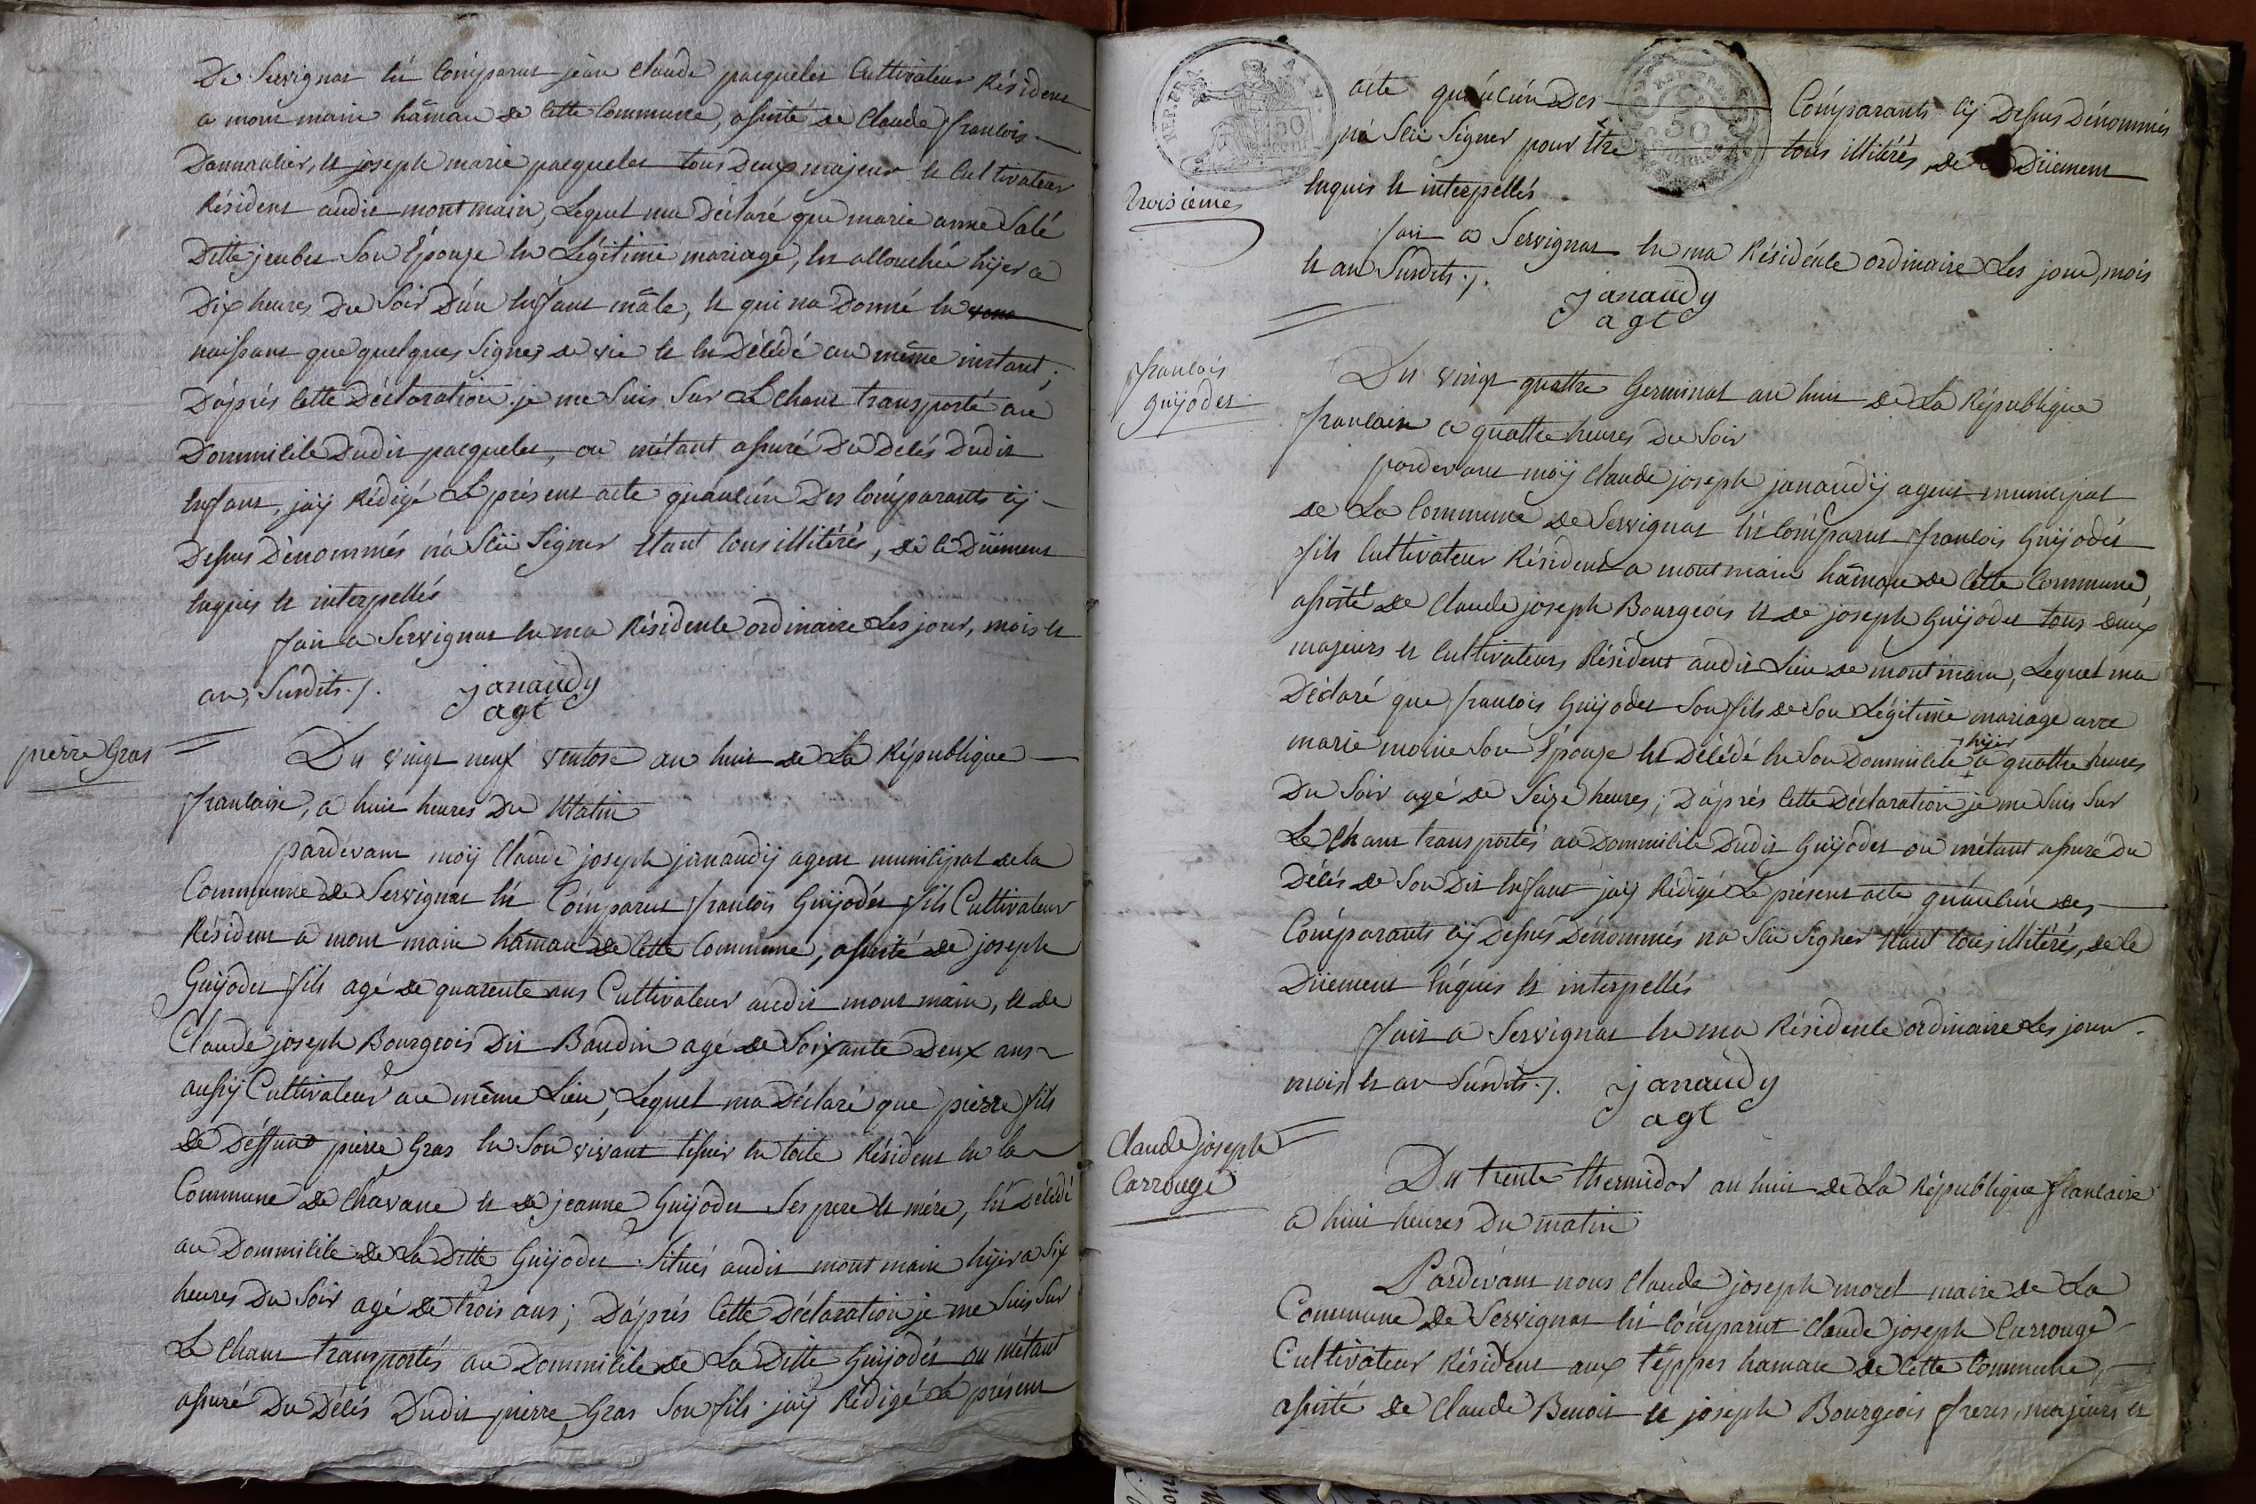 De Servignat est Comparut jean claude pacquelet Cultivateur Résident
a mont main hâmau de Cette Commune, assisté de Claude francois
Dannancier, et joseph marie pacquelet tous Deux majeur et Cultivateur
Résident audit montmain, Lequel ma Déclaré que marie anne Salé
Ditte jeubet Son Épouze En Légitime mariage, Est allouchée hijer a
Dix heures Du Soir D'un Enfant mâle, et qui na Donné En
naissant que quelques Signes de vie et Est Décédé au même instant;
D'aprés Cette Déclaration je me Suis Sur Le Chant transporté au
Dommicile Dudit pacquelet, ou métant assuré Du Delés Dudit
Enfant, jaÿ Rédigé Le présent acte quaucun Des Comparants cÿ
Dessus Dénommés na Scü Signer Etant tous illitérés, de ce Düement
Enquis et interpellés
fait a Servignat En ma Résidence ordinaire Les jour, mois et
an, Susdits ./.
janaudy
agt
pierre Gras
Du vingt neuf ventose an huit de La République
francaise, a huit heures Du Matin
pardevant moÿ Claude joseph janaudÿ agent municipal de la
Commune de Servignat Est Comparut francois Guÿodet fils Cultivateur
Résident a mont main hâmau de Cette Commune, assisté de joseph
Guÿodet fils agé de quarente ans Cultivateur audit mont main, et de
Claude joseph Bourgeois Dit Baudin agé de Soixante Deux ans
aussÿ Cultivateur au même Lieu, Lequel ma Déclaré que pierre fils
de Déffunt pierre Gras En Son vivant tissier En toile Résident En la
Commune de Chavane et de jeanne Guÿodet Ses pere et mére, Est Décédé
au Dommicile de La Ditte Guÿodet Situés audit mont main hijer a Six
heures Du Soir agé de trois ans; D'aprés Cette Déclaration je me Suis Sur
Le Chant transportés au Dommicile de La Ditte Guÿodet ou métant
assuré Du Délés Dudit pierre Gras Son fils jaÿ Rédigé Le présent
acte quaucun Des Comparants cÿ Dessus Dénommés
na Scü Signer pour Etre tous illitérés, de ce Düement
Enquis et interpellés
troisième
fait a Servignat En ma Résidence ordinaire Les jour, mois
et an Susdits ./.
janaudy
agt
francois
guÿodet
Du vingt quattre Germinal an huit de La République
francaise a quattre heures Du Soir
pardevant moÿ Claude joseph janaudÿ agent municipal
de La Commune de Servignat Est Comparut francois Guÿodet
fils Cultivateur Résident a montmain hâmau de Cette Commune,
assisté de Claude joseph Bourgeois et de joseph Guÿodet tous deux
majeurs et Cultivateurs Résident audit Lieu de montmain, Lequel ma
Déclaré que francois Guÿodet Son fils de Son Légitime mariage avec
marie moine Son Épouze Est Décédé En Son Dommicile hijer a quattre heures
Du Soir agé de Seize heures; D'aprés Cette Déclaration je me Suis Sur
Le Chant transportés au Dommicile Dudit Guÿodet ou métant assuré Du
Délés de Son Dit Enfant jaÿ Rédigé Le présent acte quaucun des
Comparants cÿ Dessus Dénommés na Scü Signer Etant tous illitérés, de ce
Düement Enquis et interpellés
fait a Servignat En ma Résidence ordinaire Les jour
mois et an Susdits ./.
janaudy
agt
Claude joseph
Carrouge
Du trente thermidor an huit de La République francaise
a huit heures Du matin
Pardevant nous Claude joseph morel maire de La
Commune de Servignat Est Comparut Claude joseph Carrouge
Cultivateur Résident aux téppes hamau de Cette Commune,
assisté de Claude Benoit et joseph Bourgeois freres, majeurs et